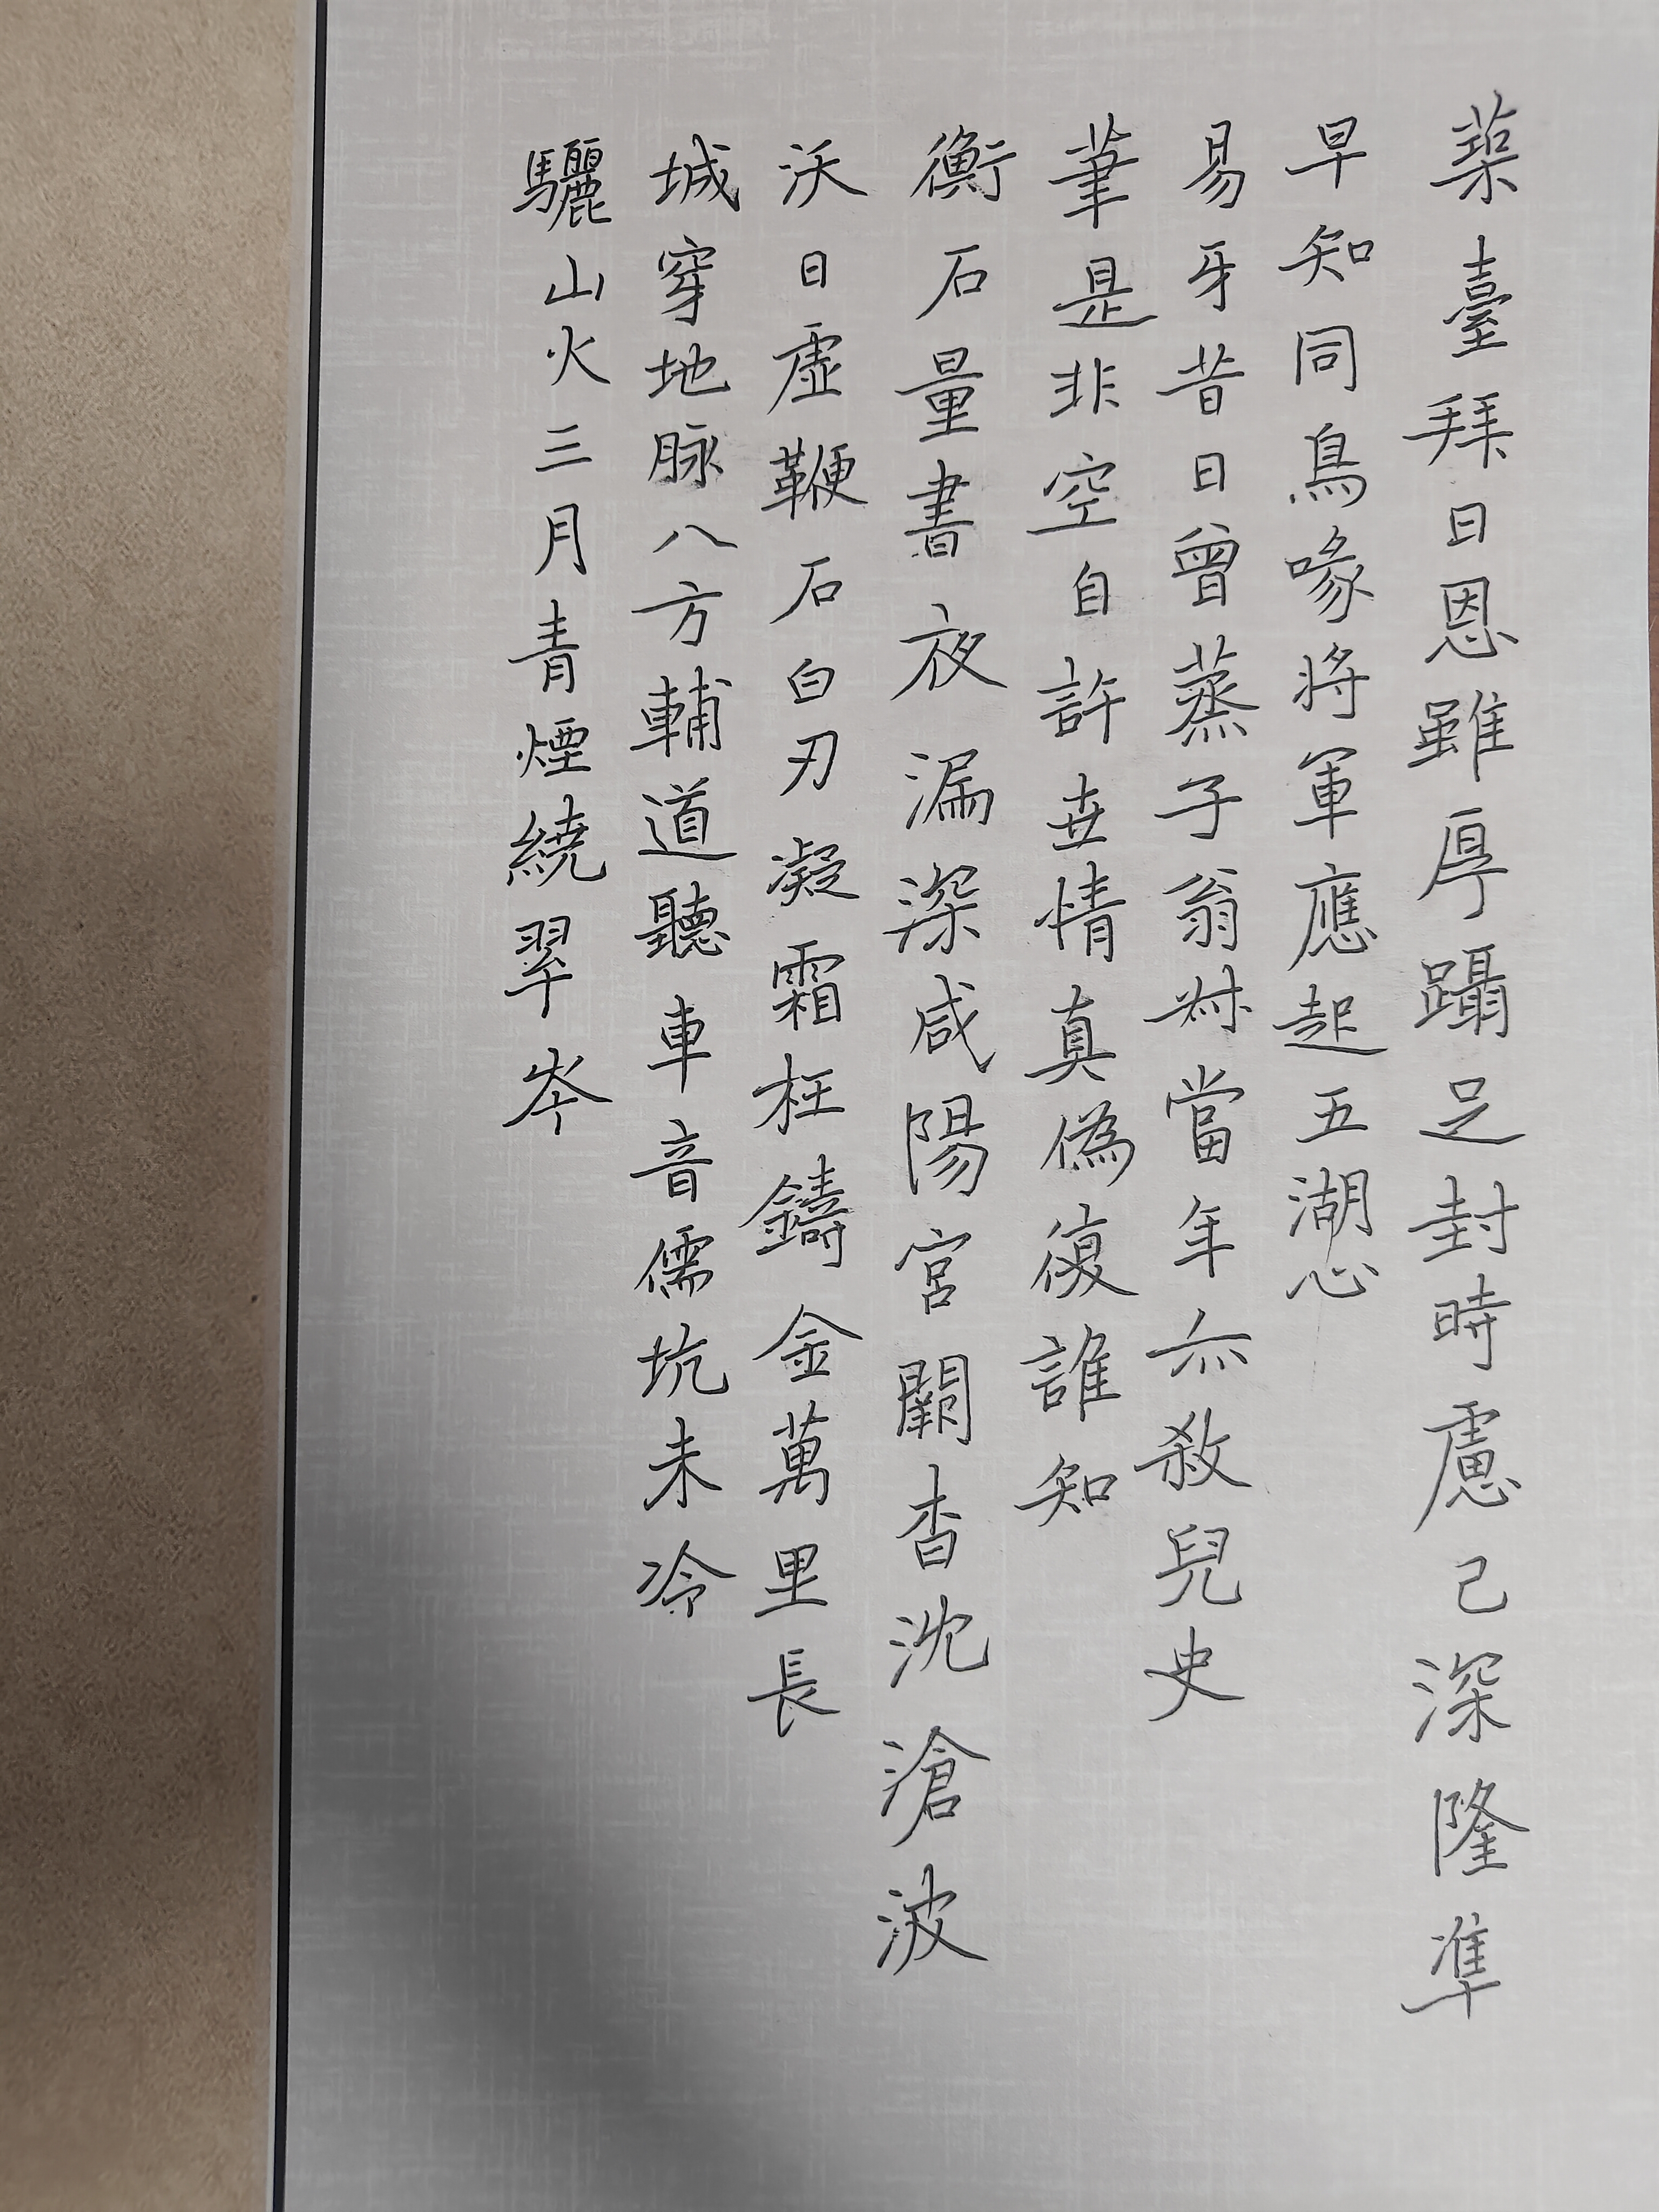 築臺拜日恩雖厚躡足封時慮已深隆準
早知同鳥喙將軍應起五湖心
易牙昔日曾蒸子翁叔當年亦殺兒史
筆是非空自許世情真偽復誰知
衡石量書夜漏深咸陽宮闕杳沈滄波
沃日虛鞭石白刃凝霜枉鑄金萬里長
城穿地脉八方輔道聽車音儒坑未冷
驪山火三月青煙繞翠岑